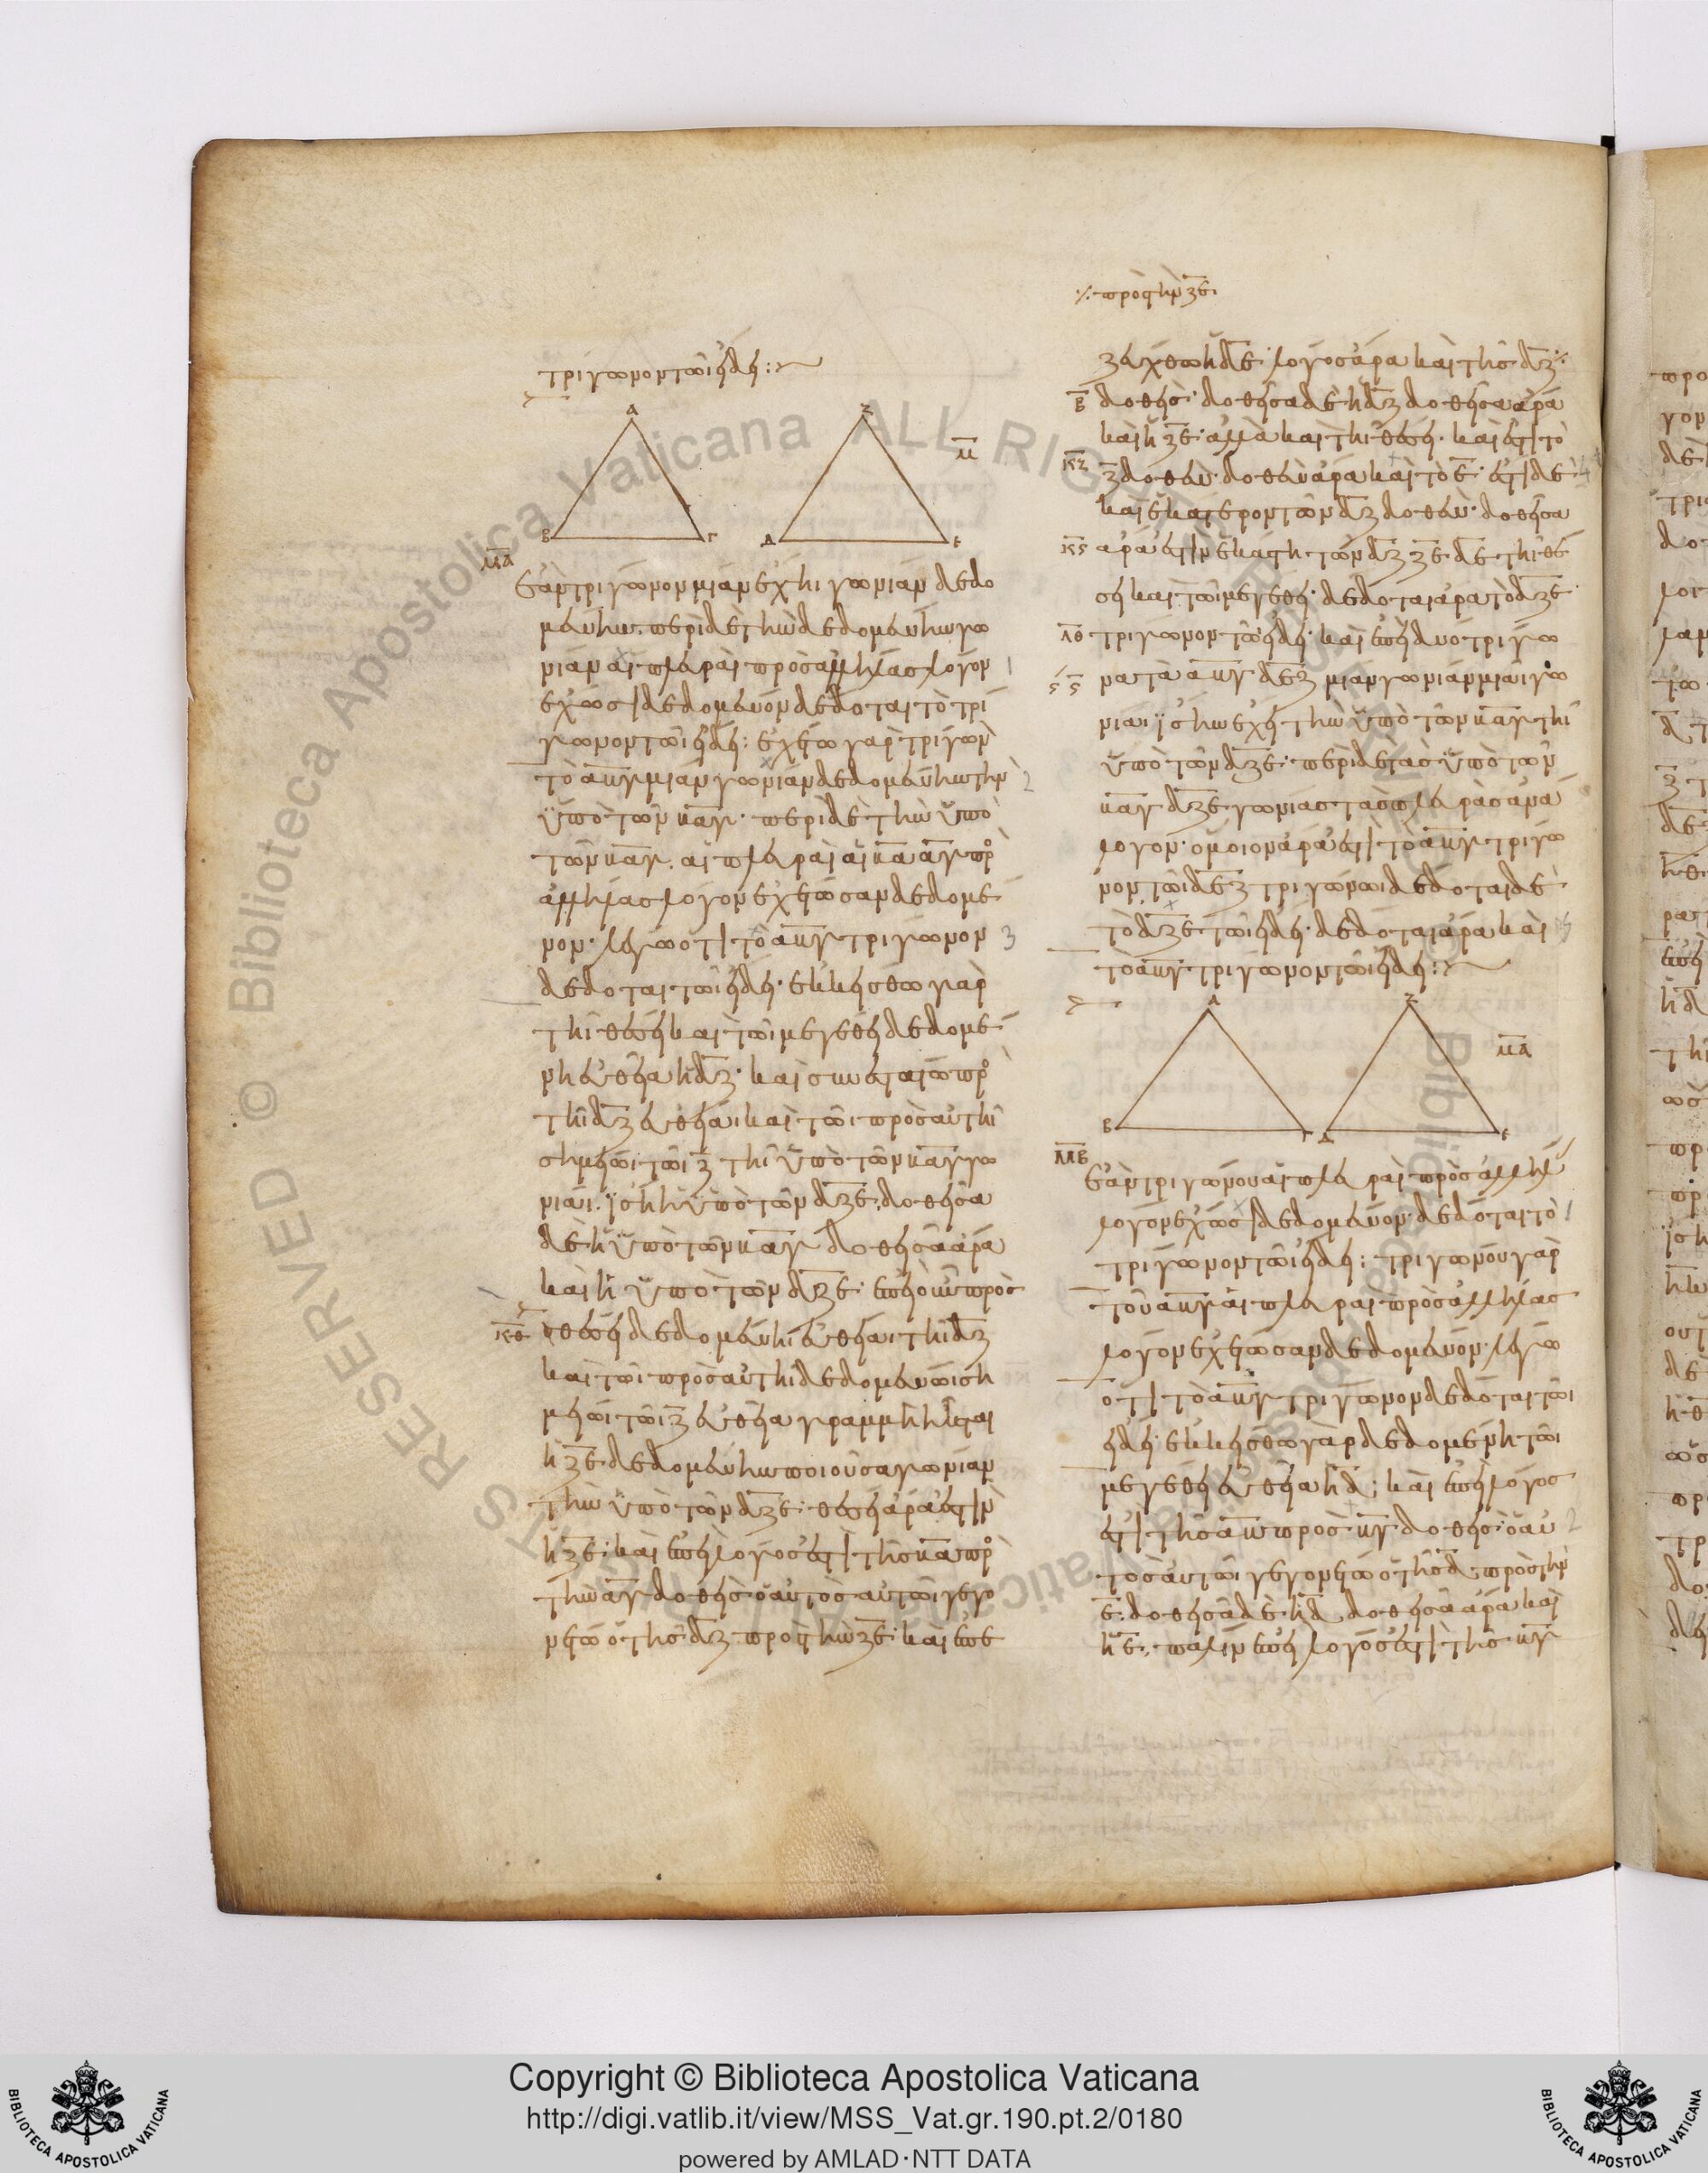 τριγωνον τῶι εἴδει :~
Α Ζ
μ
Β Γ Δ Ε
μα
Ἐὰν τρίγωνον μίαν ἔχηι γωνίαν δεδο
μένην· περὶ δὲ τὴν δεδομένην γω
νίαν αἱ πλευραὶ πρὸς ἀλλήλας λόγον
ἔχωσι δεδομένον δέδοται τὸ τρί
γωνον τῶι εἴδει: ἐχέτω γὰρ τρίγων
τὸ ΑΒΓ μίαν γωνίαν δεδομένην τὴν
ὑπὸ τῶν ΒΑΓ· περὶ δὲ τὴν ὑπὸ
τῶν ΒΑΓ. αἱ πλευραὶ αἱ ΒΑ ΑΓ πρ
ἀλλήλας λόγον ἐχέτωσαν δεδομέ
νον· λέγω ὅτι τὸ ΑΒΓ τρίγωνον
δέδοται τῶι εἴδει· ἐκκείσθω γὰρ
τῆι θέσει καὶ τῶι μεγέθει δεδομέ
νη εὐθεῖα ἡ ΔΖ· καὶ συνεστάτω πρ
τῆι ΔΖ εὐθείαι καὶ τῶι πρὸς αὐτῆι
σημείωι τῶι Ζ τῆι ὑπὸ τῶν ΒΑΓ γω
νίαι· ἴση ἡ ὑπὸ τῶν ΔΖΕ· δοθεῖσα
δὲ ἡ ὑπὸ τῶν ΒΑΓ δοθεῖσα ἄρα
καὶ ἡ ὑπὸ τῶν ΔΖΕ· ἐπεὶ οὖν πρὸς
κθ θέσει δεδομένηι εὐθείαι τῆι ΔΖ
καὶ τῶι πρὸς αὐτῆι δεδομένωι ση
μείωι τῶι Ζ εὐθεῖα γραμμὴ ἦκται
ἡ ΖΕ δεδομένην ποιοῦσα γωνίαν
τὴν ὑπὸ τῶν ΔΖΕ· θέσει ἄρα ἐστὶν
ἡ ΖΕ· καὶ ἐπεὶ λόγος ἐστὶ τῆς ΒΑ πρ
τὴν ΑΓ δοθεὶς ὁ αὐτὸς αὐτῶι γεγο
νέτω ὁ τῆς ΔΖ πρὸς τὴν ΖΕ· καὶ ἐπε
⁒ πρὸς τὴν ΖΕ·
ζεύχθω ἡ ΔΕ· λόγος ἄρα καὶ τῆς ΔΖ ⁒
β δοθείς· δοθεῖσα δὲ ἡ ΔΖ δοθεῖσα ἄρα
καὶ ἡ ΖΕ· ἀλλὰ καὶ τῆι θέσει· καὶ ἔστι τὸ
κζ Ζ δοθέν· δοθὲν ἄρα καὶ τὸ Ε· ἔστι δὲ
καὶ ἑκάτερον τῶν ΔΖ δοθέν· δοθεῖσα
κϛ ἄρα ἐστὶν ἑκάστη τῶν ΔΖ ΖΕ ΔΕ τῆι θέ
σει καὶ τῶι μεγέθει· δέδοται ἄρα τὸ ΔΖΕ
λθ τρίγωνον τῶι εἴδει· καὶ ἐπεὶ δύο τρίγω
ϛ ϛ να τὰ ΑΒΓ ΔΕΖ μίαν γωνίαν μιᾶι γω
νίαι ἴσην ἔχει τὴν ὑπὸ τῶν ΒΑΓ τῆι
ὑπὸ τῶν ΔΖΕ· περὶ δὲ τὰς ὑπὸ τῶν
ΒΑΓ ΔΖΕ γωνίας τὰς πλευρὰς ἀνά
λογον· ὅμοιον ἄρα ἐστὶ τὸ ΑΒΓ τρίγω
νον τῶι ΔΕΖ τριγώνωι δέδοται δὲ
τὸ ΔΖΕ τῶι εἴδει· δέδοται ἄρα καὶ
τὸ ΑΒΓ τρίγωνον τῶι εἴδει :~
Α Ζ
μα
Β Γ Δ Ε
μβ
Ἐὰν τριγώνου αἱ πλευραὶ πρὸς ἀλλήλ
λόγον ἔχωσι δεδομένον· δέδοται τὸ
τρίγωνον τῶι εἴδει: τριγώνου γὰρ
τοῦ ΑΒΓ αἱ πλευραὶ πρὸς ἀλλήλας
λόγον ἐχέτωσαν δεδομένον· λέγω
ὅτι τὸ ΑΒΓ τρίγωνον δέδοται τῶι
εἴδει· ἐκκείσθω γὰρ δεδομένη τῶι
μεγέθει εὐθεῖα ἡ Δ; καὶ ἐπεὶ λόγος
ἐστὶ τῆς ΑΒ πρὸς ΒΓ δοθείς· ὁ αὐ
τὸς αὐτῶι γεγονέτω ὁ τῆς Δ πρὸς τὴν
Ε· δοθεῖσα δὲ ἡ Δ δοθεῖσα ἄρα καὶ
ἡ Ε· πάλιν ἐπεὶ λόγος ἐστὶ τῆς ΒΓ
© Biblioteca Apostolica Vaticana ALL RIGHTS RESERVED
Copyright © Biblioteca Apostolica Vaticana
http://digi.vatlib.it/view/MSS_Vat.gr.190.pt.2/0180
powered by AMLAD·NTT DATA
BIBLIOTECA APOSTOLICA VATICANA
BIBLIOTECA APOSTOLICA VATICANA